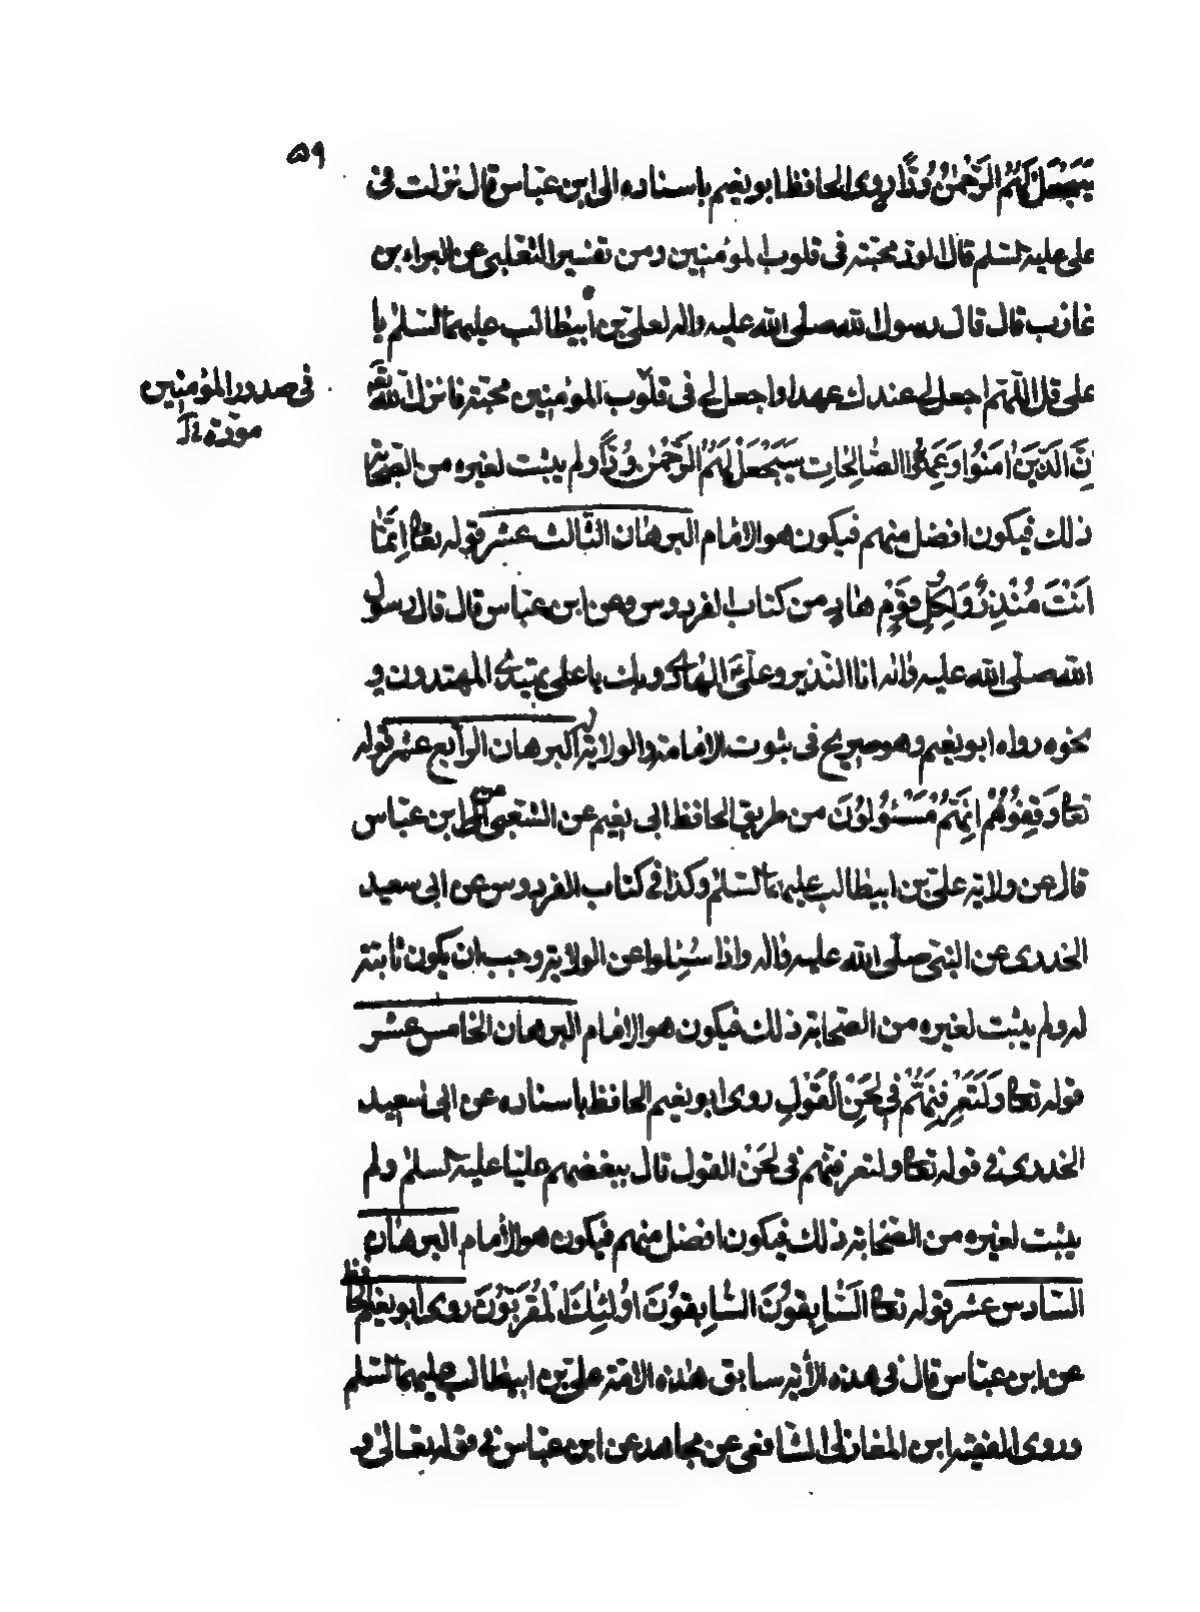 ٥٩
سَيَجْعَلُ لَهُمُ الرَّحْمٰنُ وُدًّا روى الحافظ ابو نعيم باسناده الى ابن عباس قال نزلت فى
على عليه السلم قال الود محبته فى قلوب المؤمنين ومن تفسير الثعلبى عن البراء بن
عازب قال قال رسول الله صلى الله عليه واله لعلى بن ابيطالب عليهما السلم يا
على قل اللهم اجعل لى عندك عهدا واجعل لى فى قلوب المؤمنين محبته فانزل الله تعالى
اِنَّ الَّذِينَ اٰمَنُوا وَعَمِلُوا الصَّالِحَاتِ سَيَجْعَلُ لَهُمُ الرَّحْمٰنُ وُدًّا ولم يثبت لغيره من الصحابة
ذلك فيكون افضل منهم فيكون هو الامام البرهان الثالث عشر قوله تعالى اِنَّمَا
اَنْتَ مُنْذِرٌ وَلِكُلِّ قَوْمٍ هَادٍ من كتاب الفردوس وعن ابن عباس قال قال رسول
الله صلى الله عليه واله انا النذير وعلىّ الهادى وبك يا على يهتدى المهتدون و
نحوه رواه ابو نعيم وهو صريح فى ثبوت الامامة والولاية له البرهان الرابع عشر قوله
تعالى وَقِفُوهُمْ اِنَّهُمْ مَسْئُولُونَ من طريق الحافظ ابى نعيم عن الشعبى عن ابن عباس
قال عن ولاية على بن ابيطالب عليهما السلم وكذا فى كتاب الفردوس عن ابى سعيد
الخدرى عن النبى صلى الله عليه واله واذا سُئِلوا عن الولاية وجب ان يكون ثابتة
له ولم يثبت لغيره من الصحابة ذلك فيكون هو الامام البرهان الخامس عشر
قوله تعالى وَلَتَعْرِفَنَّهُمْ فِى لَحْنِ الْقَوْلِ روى ابو نعيم الحافظ باسناده عن ابى سعيد
الخدرى فى قوله تعالى ولتعرفنهم فى لحن القول قال ببغضهم عليا عليه السلم ولم
يثبت لغيره من الصحابة ذلك فيكون افضل منهم فيكون هو الامام البرهان
السادس عشر قوله تعالى السَّابِقُونَ السَّابِقُونَ اُولٰئِكَ الْمُقَرَّبُونَ روى ابو نعيم الحافظ
عن ابن عباس قال فى هذه الاية سابق هذه الامة على بن ابيطالب عليهما السلم
وروى الفقيه ابن المغازلى الشافعى عن مجاهد عن ابن عباس فى قوله تعالى و
فى صدور المؤمنين
مودة